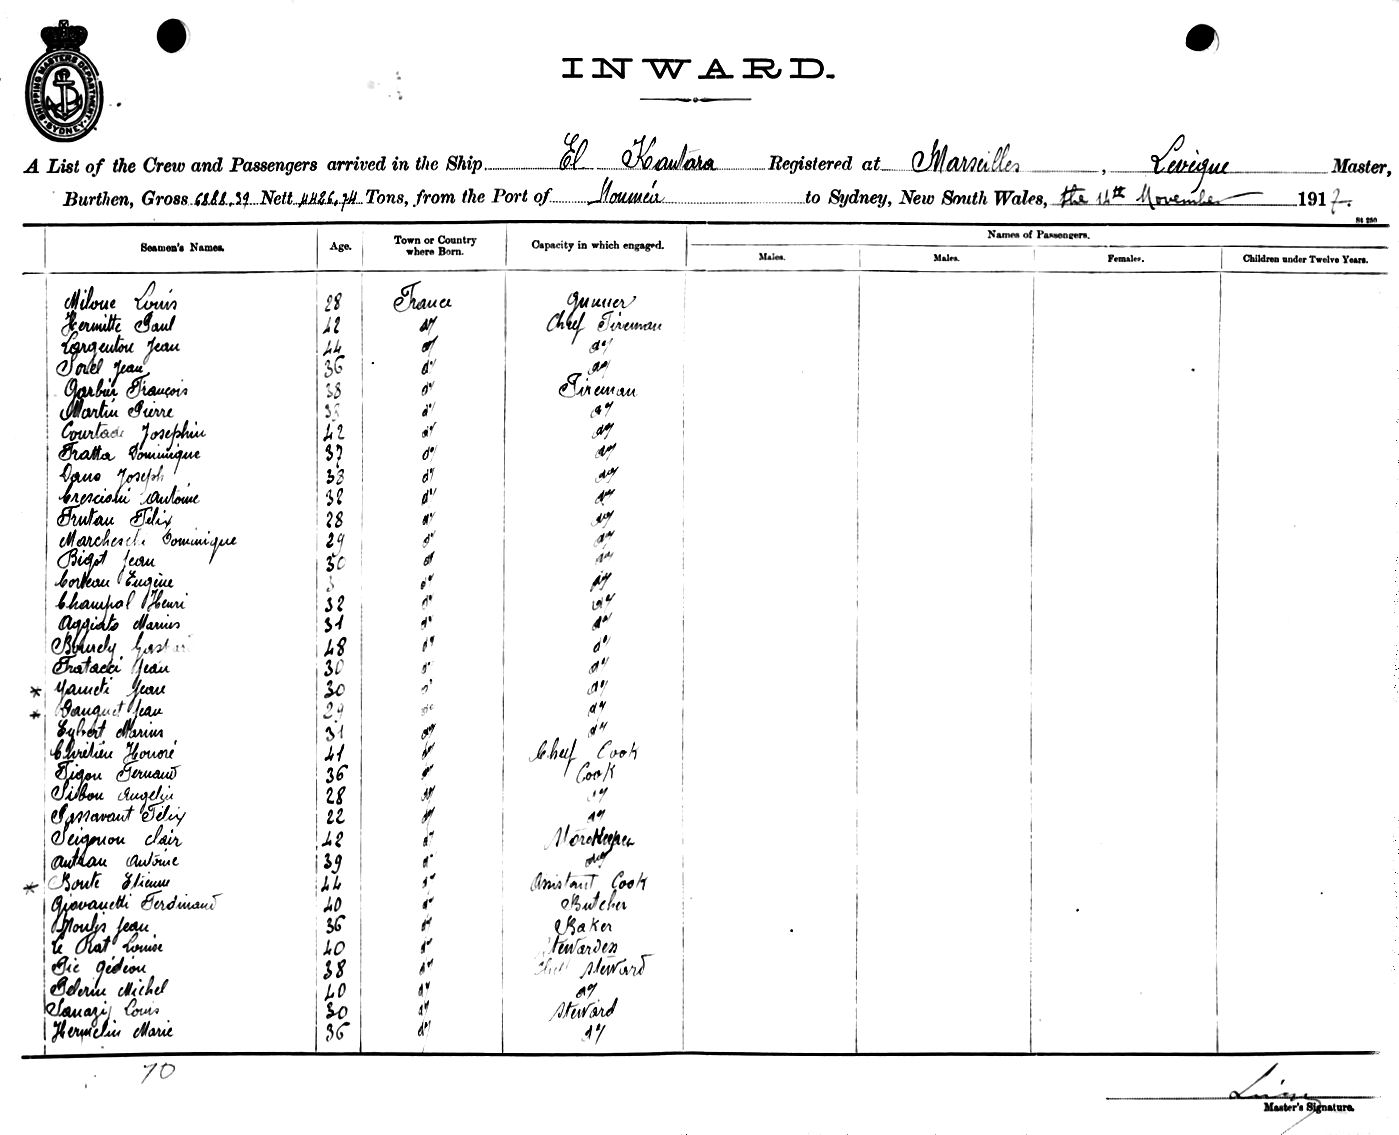 SHIPPING MASTERS DEPARTMENT SYDNEY
INWARD.
A List of the Crew and Passengers arrived in the Ship El Kantara Registered at Marseilles, Levèque Master,
Burthen, Gross 6888.39 Nett 4426.74 Tons, from the Port of Nouméa to Sydney, New South Wales, the 14th November 1917.
St 250
Names of Passengers.
Seamen's Names. Age. Town or Country where Born. Capacity in which engaged. Males. Males. Females. Children under Twelve Years.
Miloue Louis 28 France gunner
Hermitte Paul 42 do Chief Fireman
Largentou Jean 44 do do
Sorel Jean 36 do do
Garbies François 38 do Fireman
Martin Pierre do do
Courtade Josephin 42 do do
Fratta Dominique 37 do do
Dano Joseph 38 do do
Cresciani Antoine 32 do do
Frutau Félix 28 do do
Marcheschi Dominique 29 do do
Bigot Jean 30 do do
Corteau Eugène do do
Champol Henri 32 do do
Aggiato Marius 31 do do
Bourely 48 do do
Fratacci Jean 30 do do
* Jean 30 do do
* Bauquet Jean 29 do do
Eybert Marius 31 do do
Chrétien Honoré 41 do Chief Cook
Figon Fernand 36 do Cook
Sisbou Angelin 28 do do
Passavant Félix 22 do do
Seigonou Clair 42 do Storekeeper
Autran Antoine 39 do do
* Boute Etienne 44 do Assistant Cook
Giovanetti Ferdinand 40 do Butcher
Moulis Jean 36 do Baker
Le Rat Louise 40 do Stewardess
Pic Gédéon 38 do Chief Steward
Pelerin Michel 40 do do
Sanazij Louis 30 do Steward
Hermelin Marie 36 do do
70
Master's Signature.